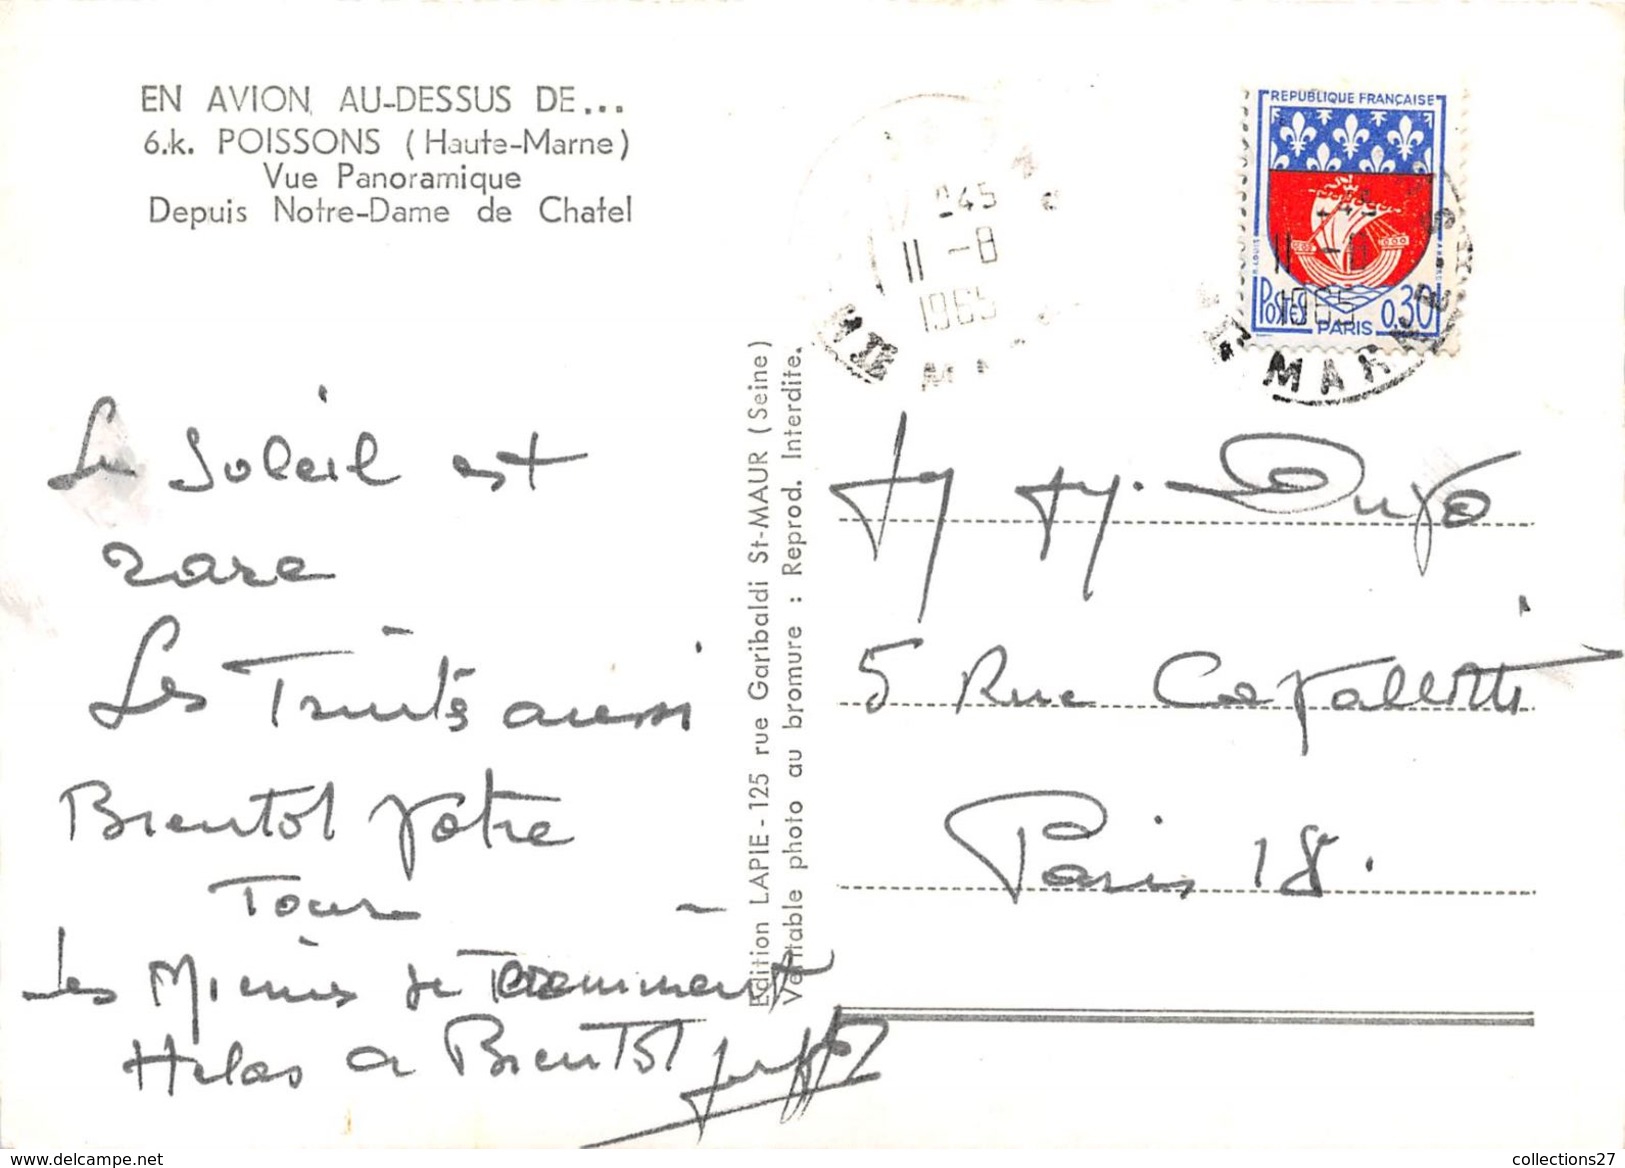 EN AVION AU-DESSUS DE...
6.k. POISSONS (Haute-Marne)
Vue Panoramique
Depuis Notre-Dame de Chatel
Le Soleil est
rare
Les Truites aussi
Bientot votre
Tour
Les Miens se Terminent
Helas a Bientot
Edition LAPIE - 125 rue Garibaldi St-MAUR (Seine)
Véritable photo au bromure : Reprod. Interdite.
245
11 -8
1965
REPUBLIQUE FRANÇAISE
POSTES 0,30
PARIS
11 -8
1965
MARNE
5 Rue Cavallotti
Paris 18.
delcampe.net
collections27